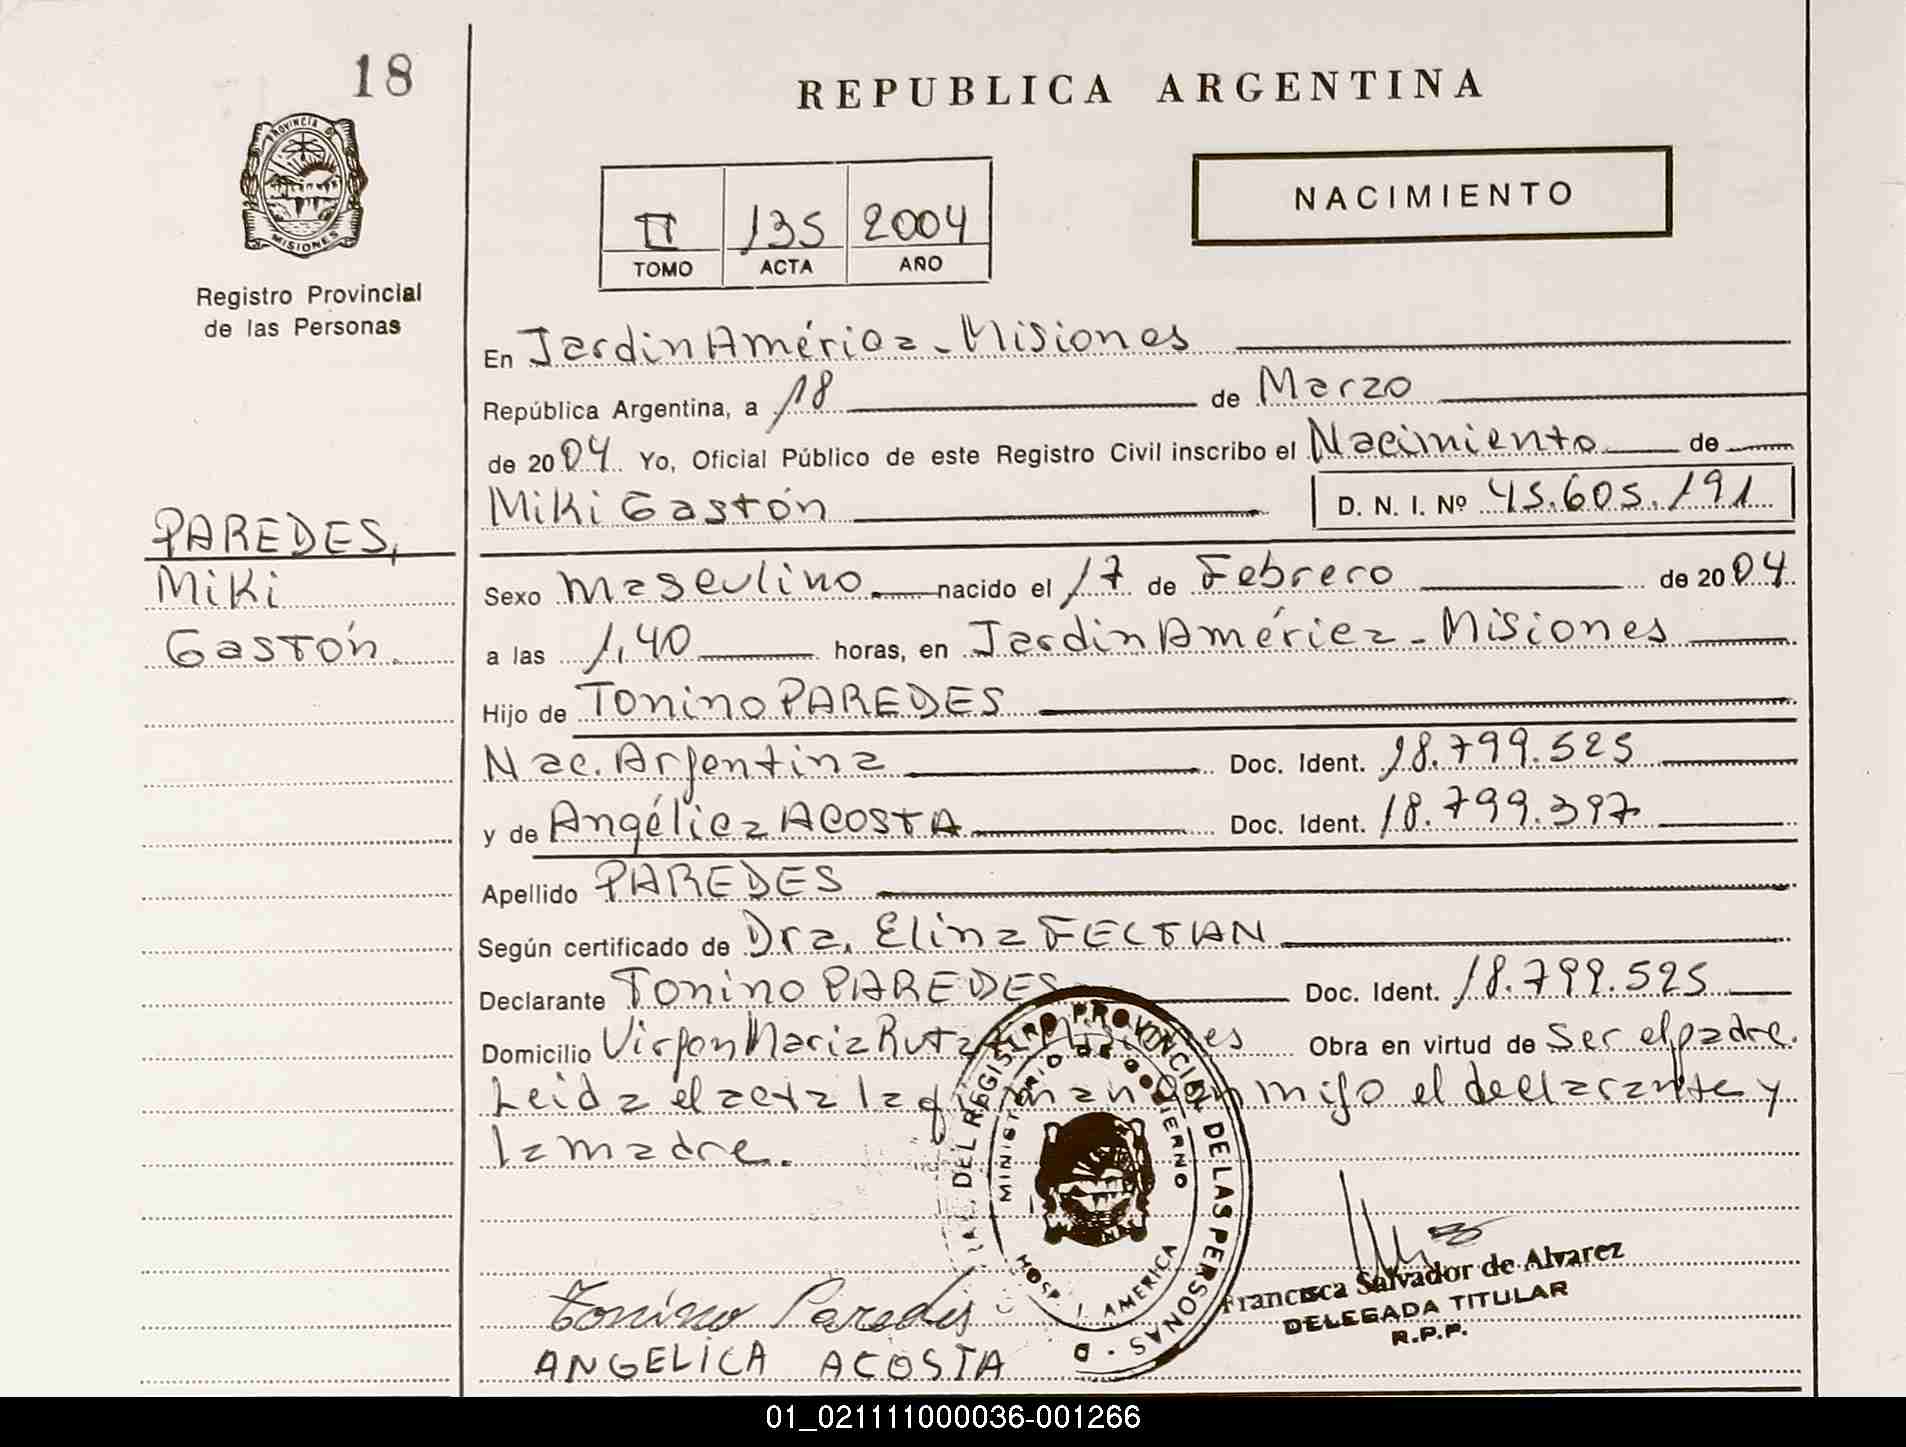 18
REPUBLICA ARGENTINA
PROVINCIA DE
MISIONES
Registro Provincial
de las Personas
NACIMIENTO
II 135 2004
TOMO ACTA AÑO
En Jardin América - Misiones
República Argentina, a 18 de Marzo
de 2004 Yo, Oficial Público de este Registro Civil inscribo el Nacimiento de
Miki Gastón D. N. I. Nº 45.605.191
PAREDES,
Miki
Gastón.
Sexo masculino nacido el 17 de Febrero de 2004
a las 1,40 horas, en Jardin América - Misiones
Hijo de Tonino PAREDES
Nac. Argentina Doc. Ident. 18.799.525
y de Angélica ACOSTA Doc. Ident. 18.799.397
Apellido PAREDES
Según certificado de Dra. Elina
Declarante Tonino PAREDES Doc. Ident. 18.799.525
Domicilio Virgen Maria Ruta Obra en virtud de Ser el padre.
Leida el acta la firman con migo el declarante y
la madre.
DEL REGISTRO PROVINCIAL DE LAS PERSONAS
MINISTERIO DE GOBIERNO
HOSP. J. AMERICA
Tonino Paredes
ANGELICA ACOSTA
Francisca Salvador de Alvarez
DELEGADA TITULAR
R.P.P.
01_021111000036-001266